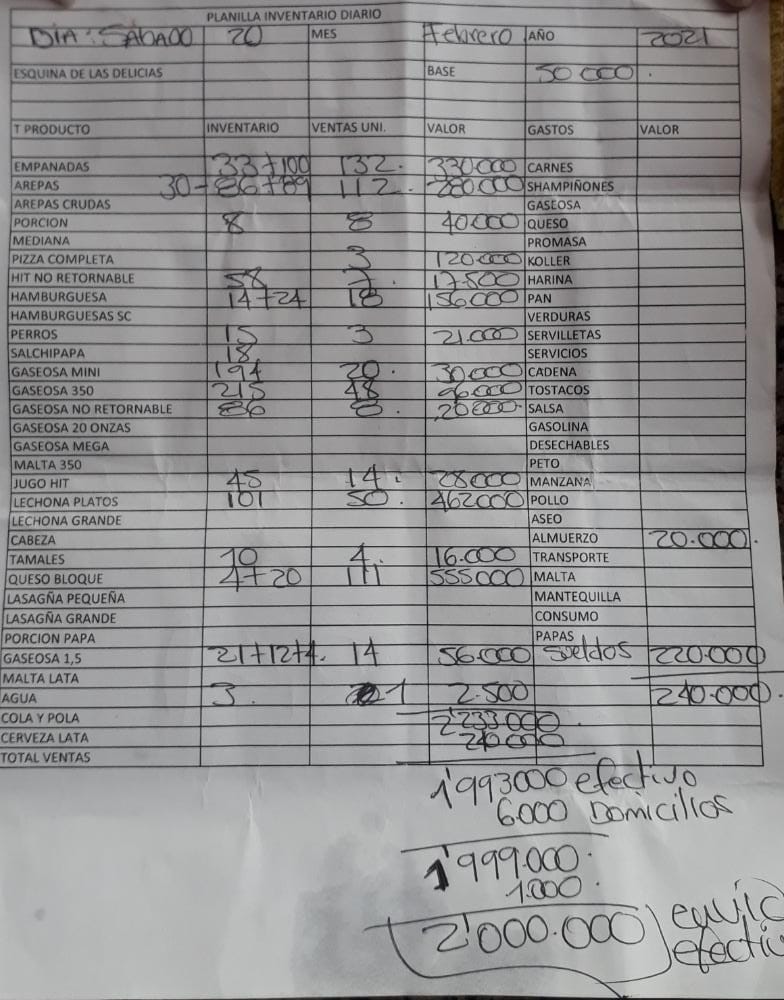 PLANILLA INVENTARIO DIARIO
DIA: SABADO 20 MES Febrero AÑO 2021
ESQUINA DE LAS DELICIAS BASE 50000.
T PRODUCTO INVENTARIO VENTAS UNI. VALOR GASTOS VALOR
EMPANADAS 33+100 132. 330000 CARNES
AREPAS 30-86+89 112. 280000 SHAMPIÑONES
AREPAS CRUDAS GASEOSA
PORCION 8 8 40000 QUESO
MEDIANA PROMASA
PIZZA COMPLETA 3 120.000 KOLLER
HIT NO RETORNABLE 58 7. 17.500 HARINA
HAMBURGUESA 14+24 18 156000 PAN
HAMBURGUESAS SC VERDURAS
PERROS 15 3 21.000 SERVILLETAS
SALCHIPAPA 18 SERVICIOS
GASEOSA MINI 194 20. 30000 CADENA
GASEOSA 350 215 48 96000 TOSTACOS
GASEOSA NO RETORNABLE 86 8. 20000. SALSA
GASEOSA 20 ONZAS GASOLINA
GASEOSA MEGA DESECHABLES
MALTA 350 PETO
JUGO HIT 45 14. 28000 MANZANA
LECHONA PLATOS 101 50. 462000 POLLO
LECHONA GRANDE ASEO
CABEZA ALMUERZO 20.000.
TAMALES 10 4. 16.000 TRANSPORTE
QUESO BLOQUE 4+20 111 555000 MALTA
LASAGÑA PEQUEÑA MANTEQUILLA
LASAGÑA GRANDE CONSUMO
PORCION PAPA PAPAS
GASEOSA 1,5 21+12+4. 14 56.000 sueldos 220.000
MALTA LATA
AGUA 3. 1 2.500 240.000.
COLA Y POLA 2'233.000.
CERVEZA LATA 240000
TOTAL VENTAS
1'993000 efectivo
6.000 Domicilios
1'999.000.
1.000.
2'000.000
efectiv